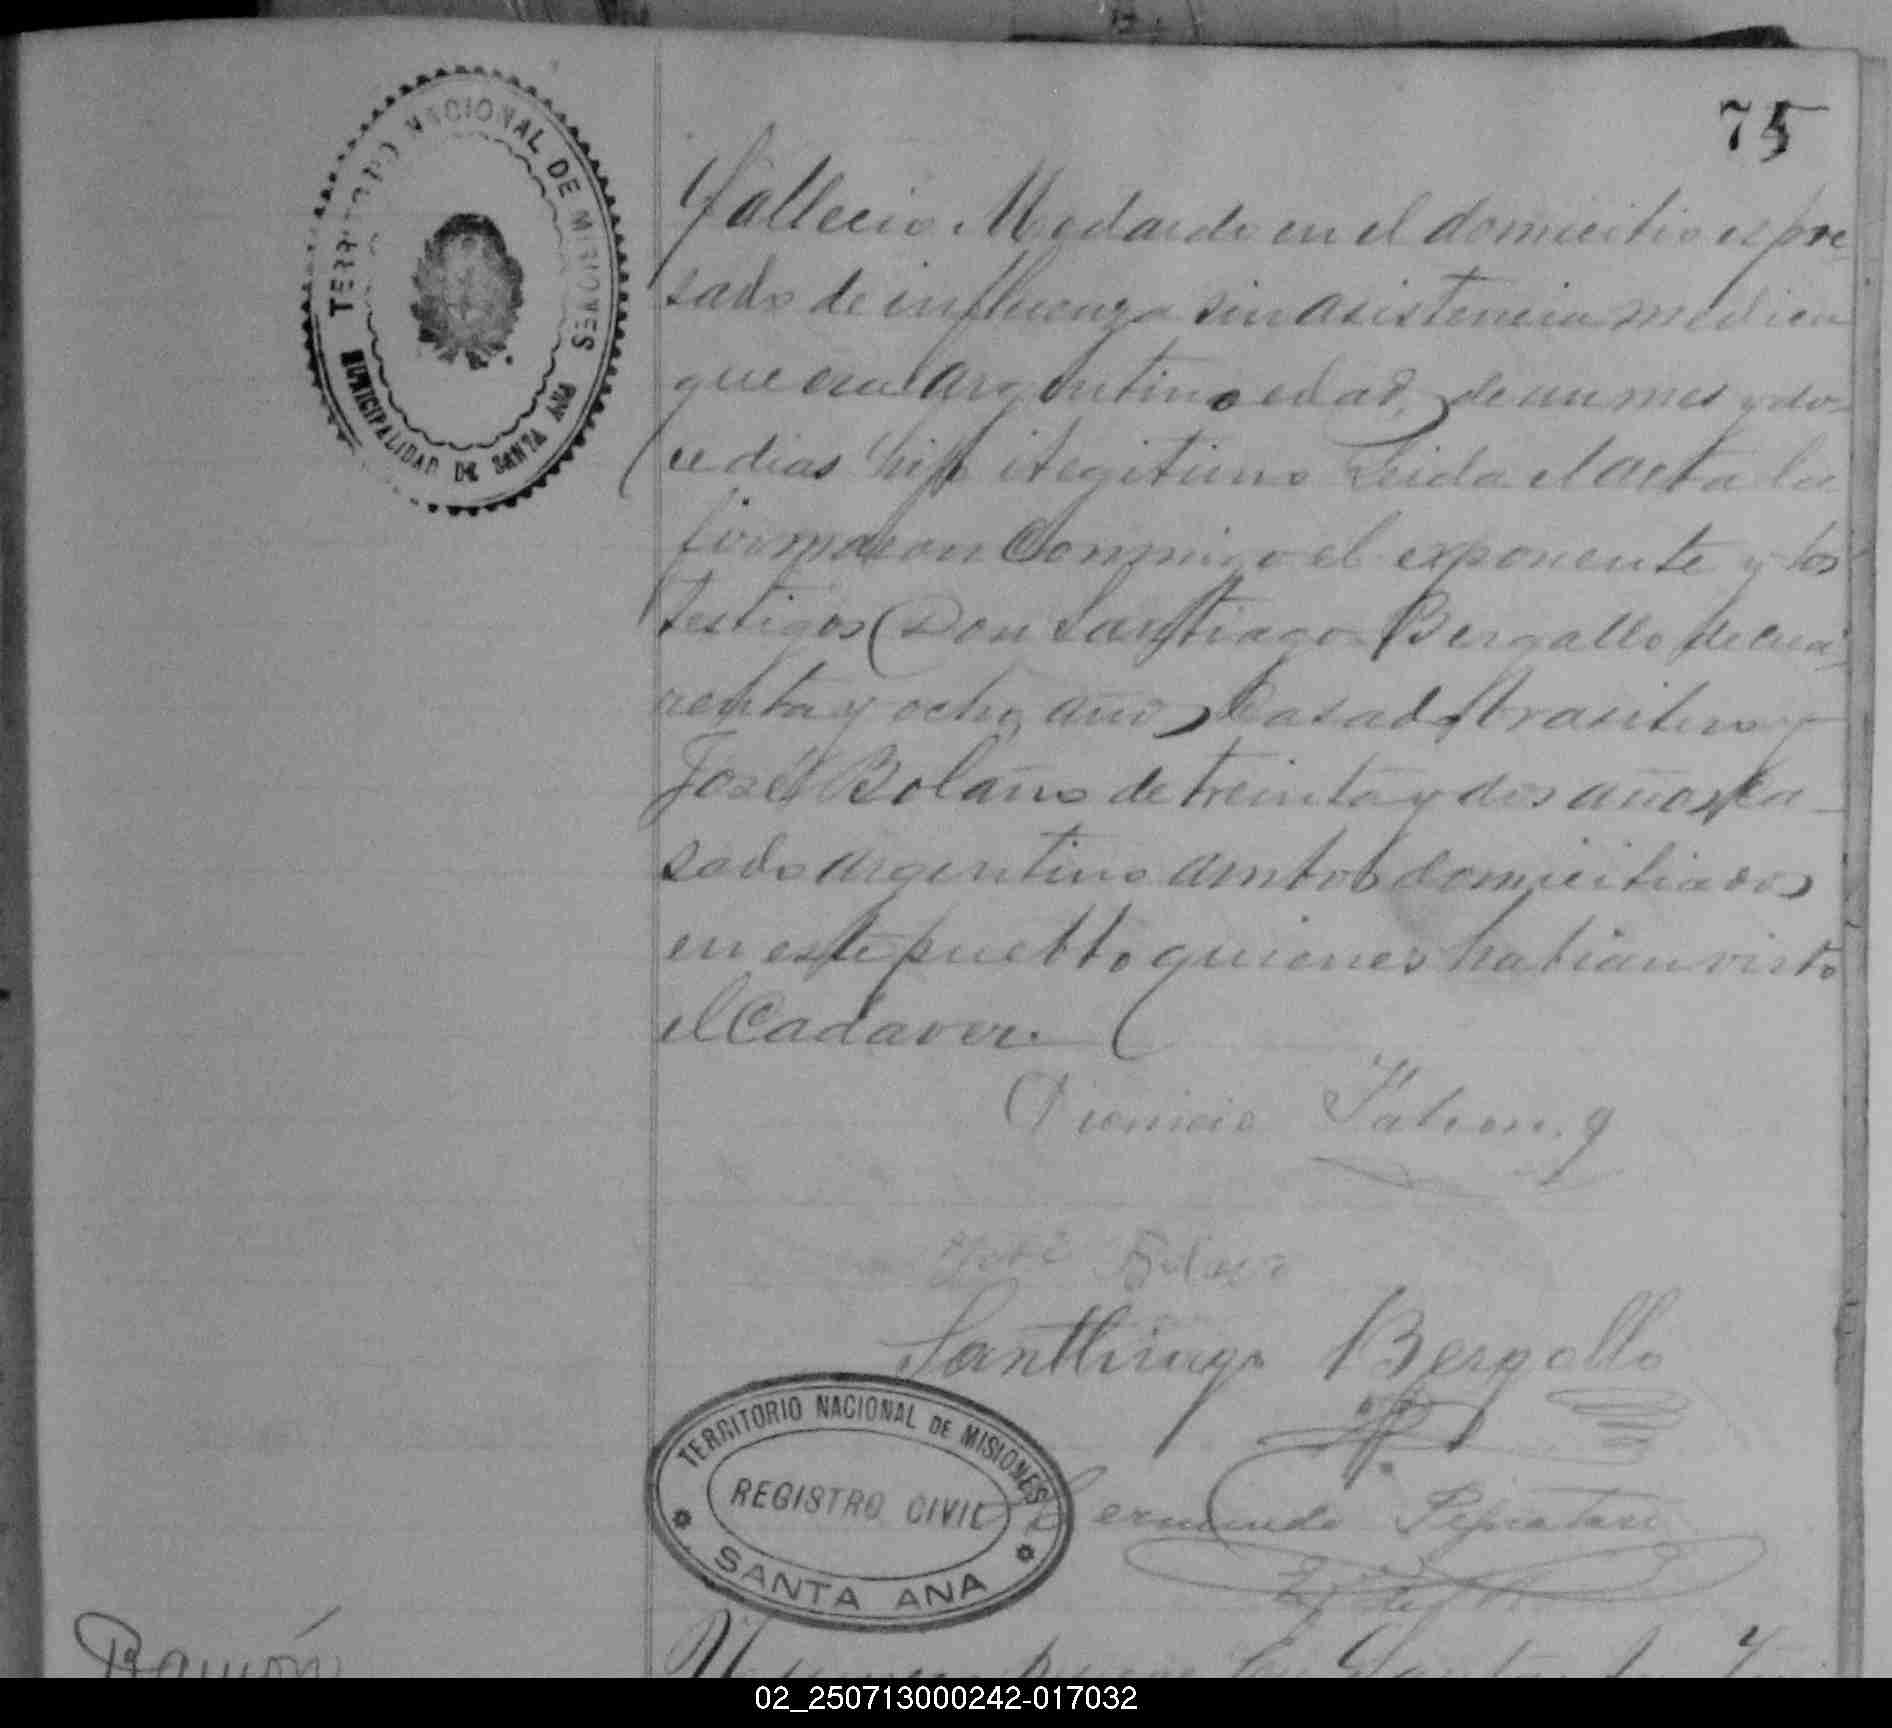 75
TERRITORIO NACIONAL DE MISIONES
MUNICIPALIDAD DE SANTA ANA
fallecio Medardo en el domicilio espre
sado de influenza sin asistencia medica
que era argentino edad, de un mes y do
ce dias hijo ilegitimo Leida el acta la
firmaron conmigo el exponente y los
testigos Don Santiago Bergallo de cua-
renta y ocho años Casado brasilero y
José Bolaño de treinta y dos años ca-
sado argentino ambos domiciliados
en este pueblo quienes habian visto
el Cadaver.
Dionicio
José
Santhiago Bergallo
TERRITORIO NACIONAL DE MISIONES
REGISTRO CIVIL
SANTA ANA
Ramón
02_250713000242-017032